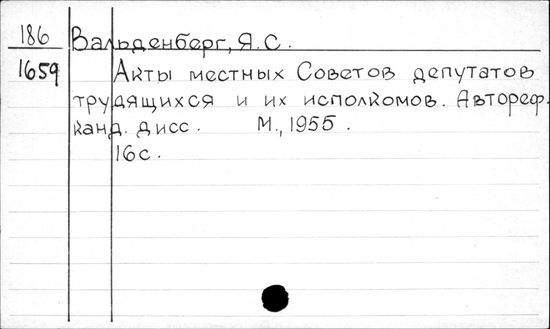 186 Вальденберг, Я.С.
1659 Акты местных Советов депутатов
трудящихся и их исполкомов. Автореф.
канд. дисс. М., 1955.
16с.